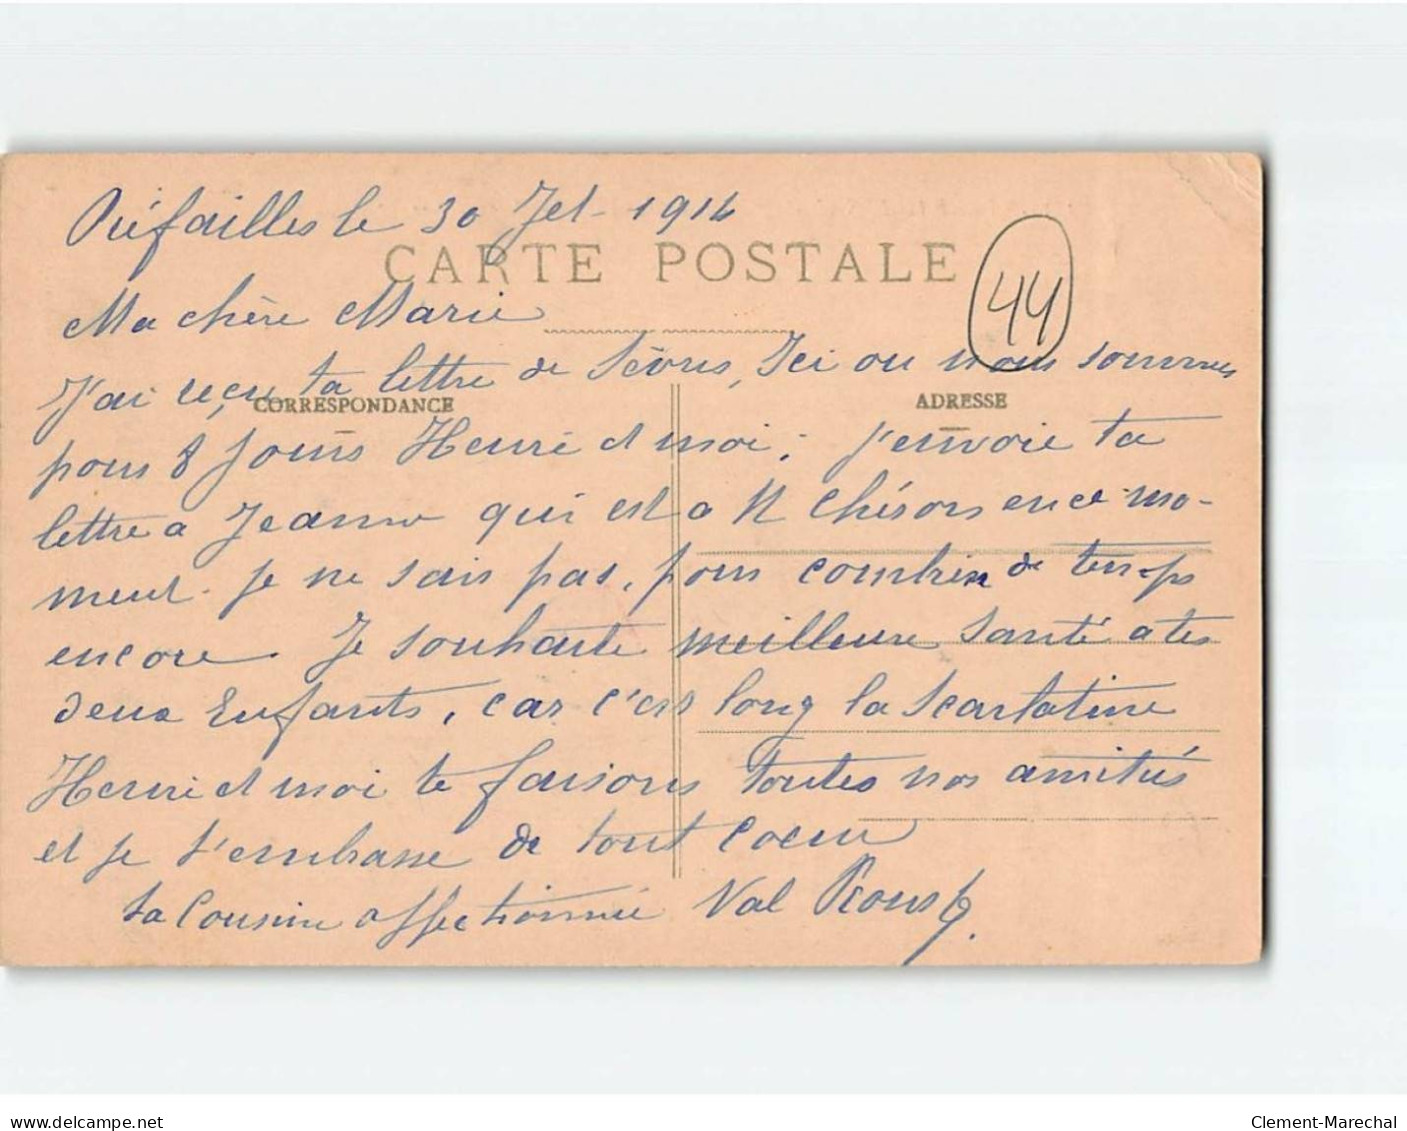 Préfailles le 30 Jet - 1914
CARTE POSTALE
44
Ma chère Marie
J'ai reçu ta lettre de Sèvres, Ici ou nous sommes
CORRESPONDANCE
ADRESSE
pour 8 jours Henri et moi; j'envoie ta
lettre a Jeanne qui est a en ce mo-
ment. Je ne sais pas, pour combien de temps
encore. Je souhaite meilleure santé a tes
deux Enfants, car c'est long la Scarlatine
Henri et moi te faisons toutes nos amitiés
et je t'embrasse de tout coeur
ta Cousine affectionnée Val
www.delcampe.net
Clement-Marechal